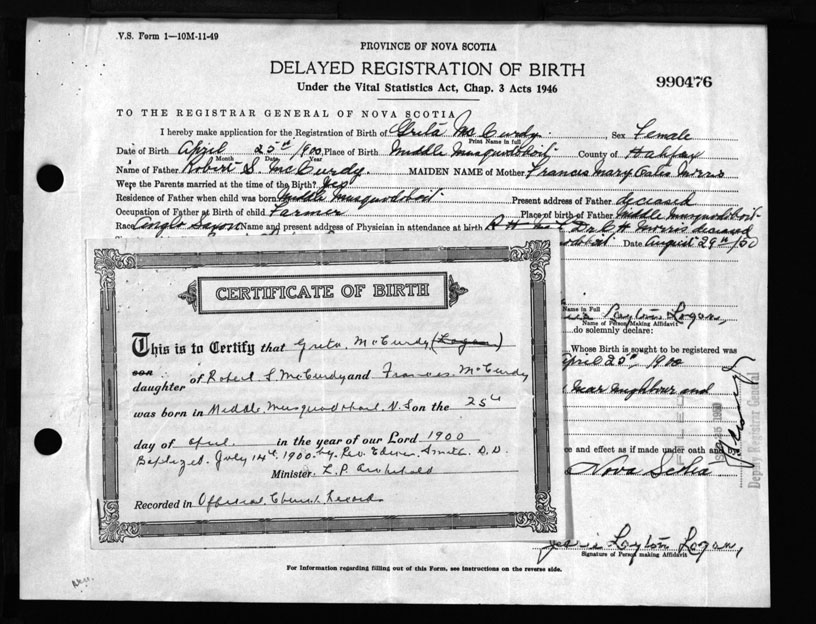 V.S. Form 1—10M-11-49
PROVINCE OF NOVA SCOTIA
DELAYED REGISTRATION OF BIRTH
990476
Under the Vital Statistics Act, Chap. 3 Acts 1946
TO THE REGISTRAR GENERAL OF NOVA SCOTIA
I hereby make application for the Registration of Birth of Greta McCurdy Sex Female
Print Name in full
Date of Birth April 25th 1900, Place of Birth Middle Musquodoboit County of Halifax
Month Date Year
Name of Father Robert S. McCurdy. MAIDEN NAME of Mother Francis Mary
Were the Parents married at the time of the Birth? Yes
Residence of Father when child was born Middle Musquodoboit Present address of Father deceased
Occupation of Father at Birth of child Farmer Place of birth of Father Middle Musquodoboit
Race Anglo Saxon Name and present address of Physician in attendance at birth Dr C H Morris deceased
Date August 29th/50
CERTIFICATE OF BIRTH
This is to Certify that Greta McCurdy (Logan)
son
daughter of Robert S McCurdy and Frances McCurdy
was born in Middle Musquodoboit N.S on the 25th
day of April in the year of our Lord 1900
Baptized July 14th 1900 by Rev. Edwin Smith D.D.
Minister. L.P. Archibald
Recorded in Official Church Records
Name in Full
Layton Logan,
Name of Person Making Affidavit
do solemnly declare:
Whose Birth is sought to be registered was
April 25th, 1900
near neighbour and
ce and effect as if made under oath and by
Nova Scotia
Deputy Registrar General
Jessie Layton Logan,
Signature of Person making Affidavit
For Information regarding filling out of this Form, see instructions on the reverse side.